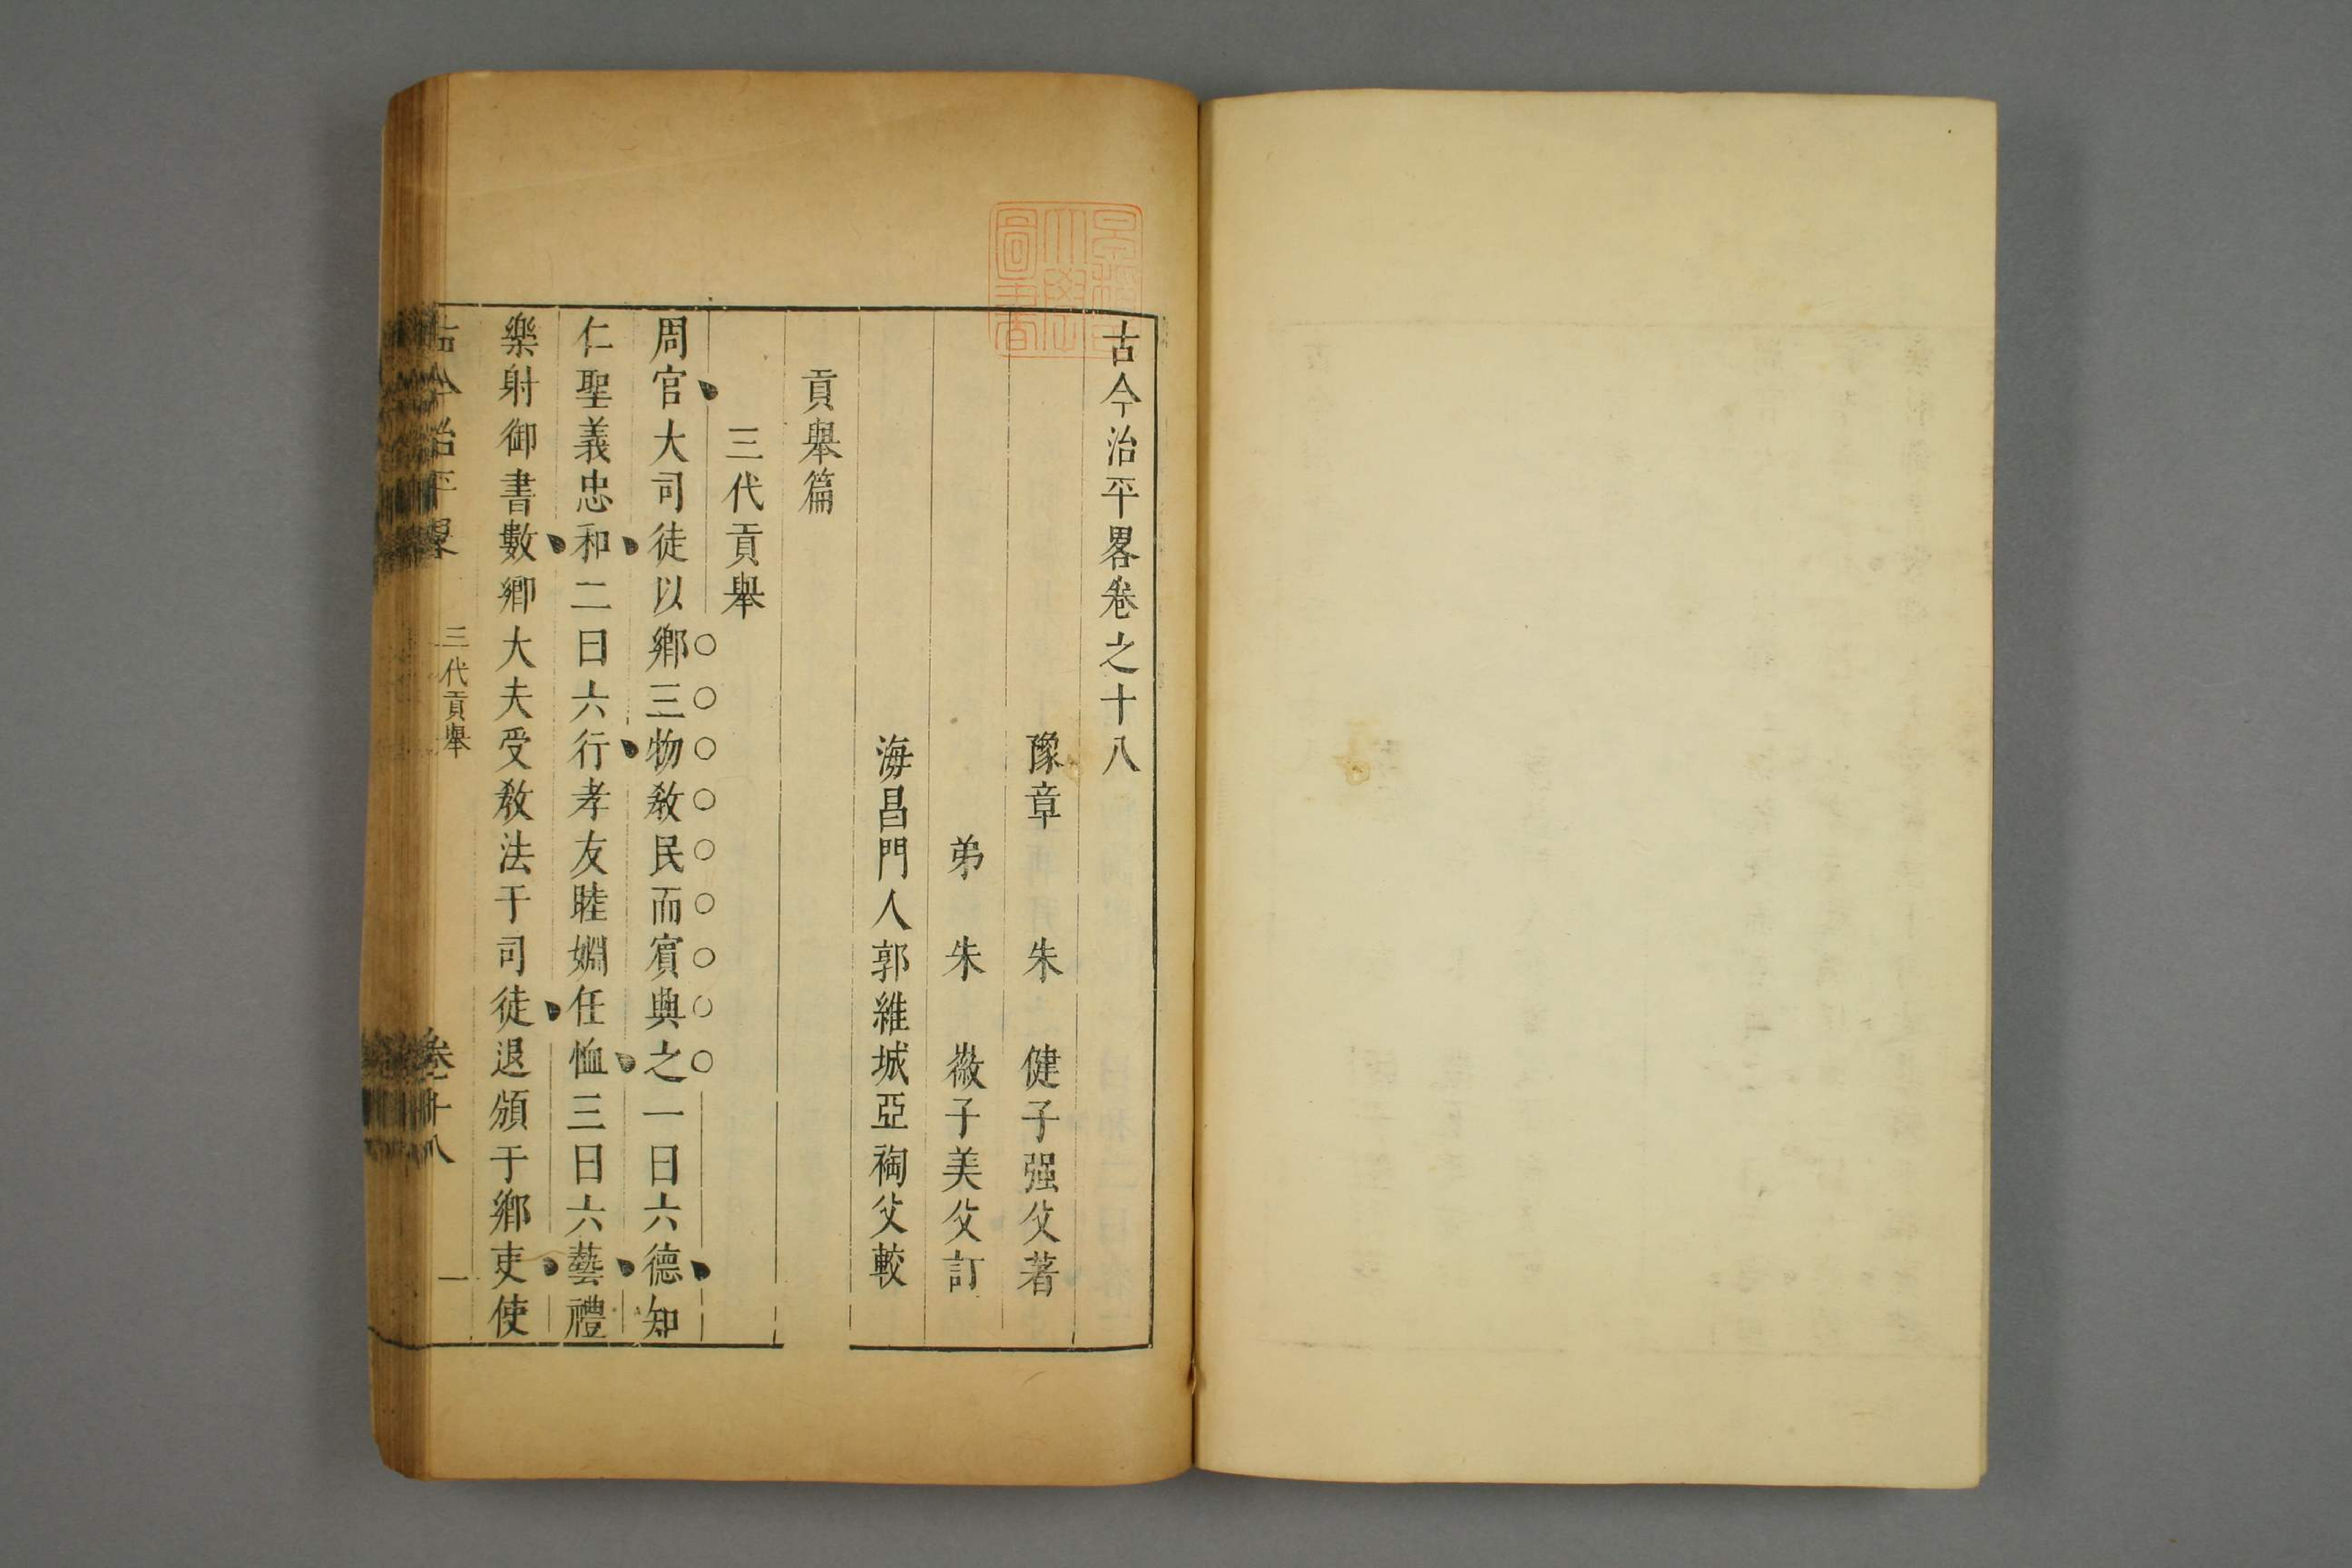 古今治平畧卷之十八
豫章 朱 健子强父著
弟 朱 薇子美父訂
海昌門人郭維城亞裪父較
貢舉篇
三代貢舉
周官大司徒以鄉三物敎民而賓興之一曰六德知
仁聖義忠和二曰六行孝友睦婣任恤三曰六藝禮
樂射御書數鄉大夫受敎法于司徒退頒于鄉吏使
古今治平畧 三代貢舉 卷十八 一